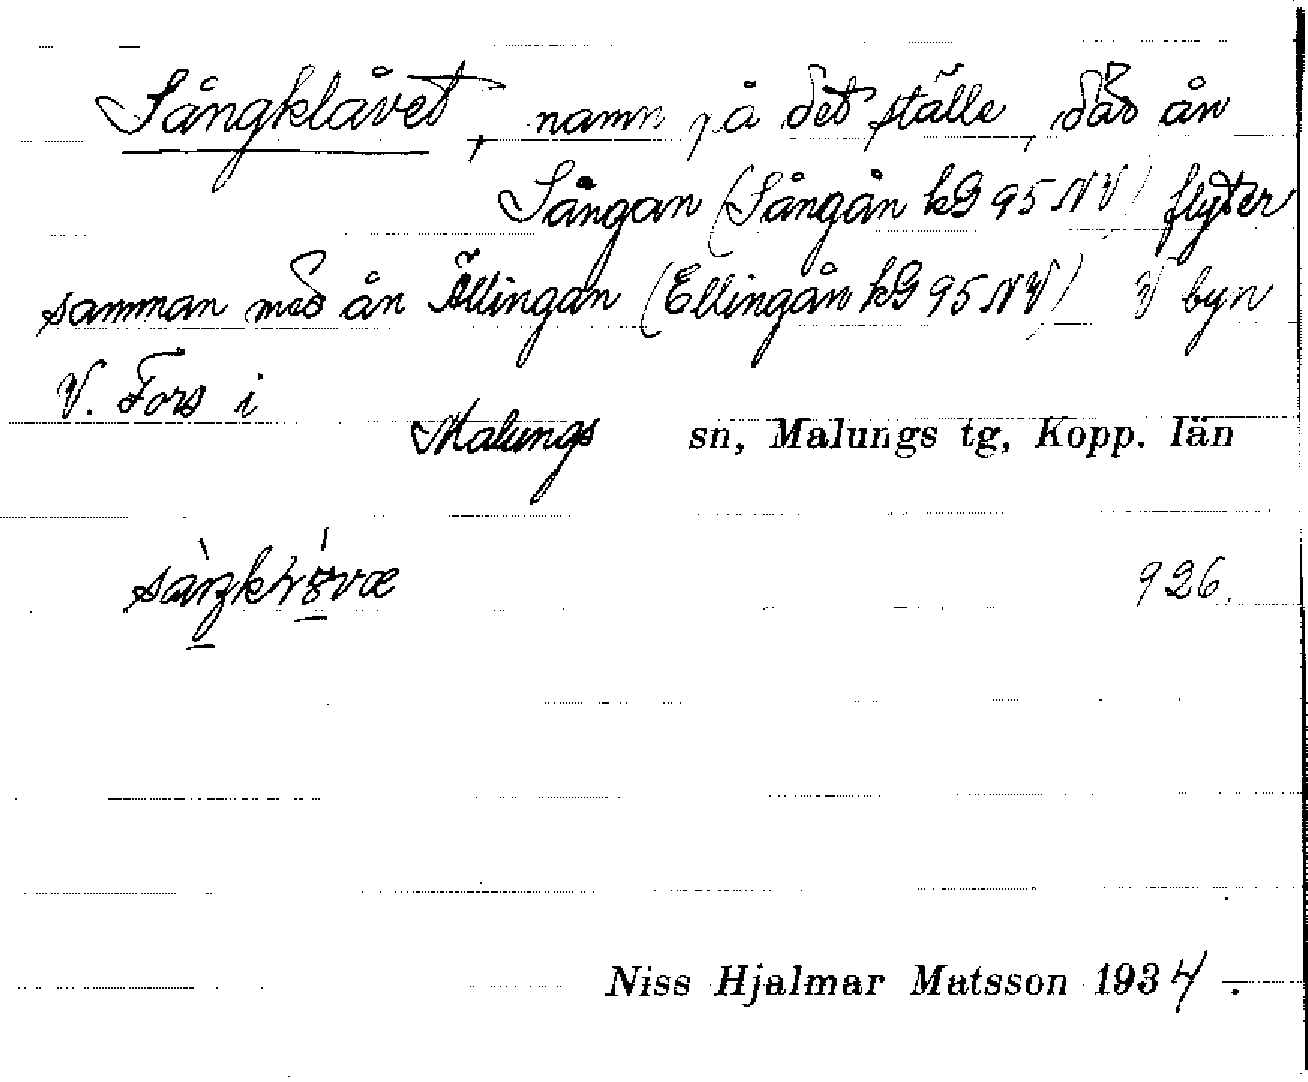 Sångklåvet, namn på det ställe, där ån
Sångan (Sångån kG 95 NV) flyter
samman med ån Ällingan (Ellingån kG 95 NV) V byn
V. Fors i
Malungs sn, Malungs tg, Kopp. län
926.
Niss Hjalmar Matsson 1934.